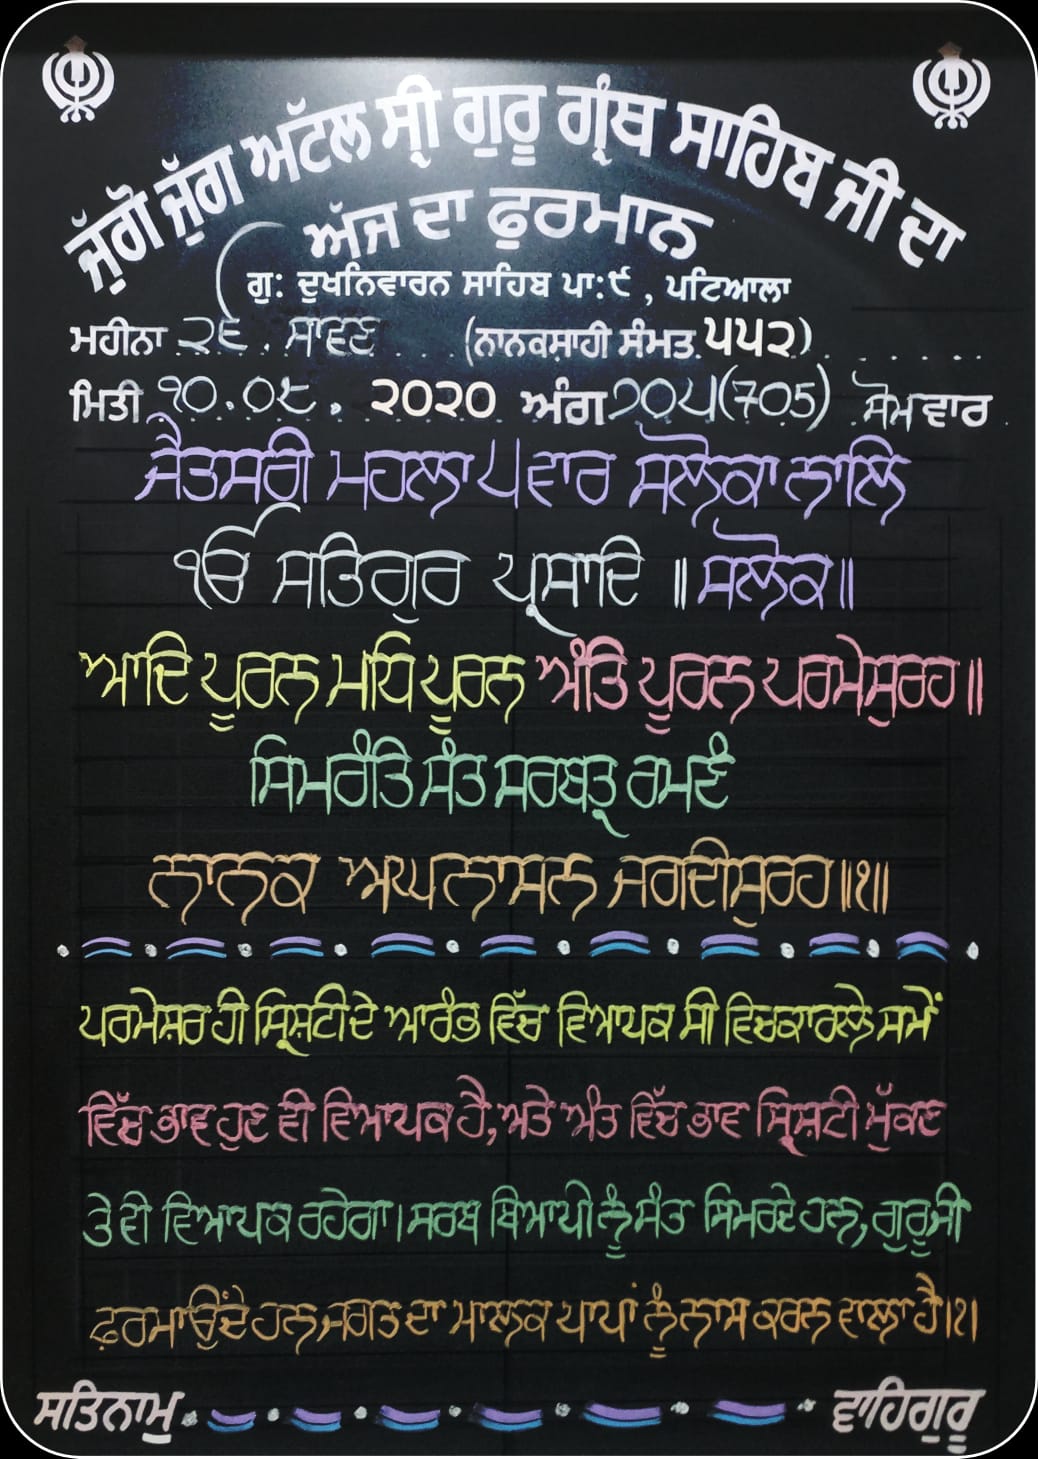 ਜੁੱਗੋ ਜੁੱਗ ਅਟੱਲ ਸ੍ਰੀ ਗੁਰੂ ਗ੍ਰੰਥ ਸਾਹਿਬ ਜੀ ਦਾ
ਅੱਜ ਦਾ ਫੁਰਮਾਨ
ਗੁ: ਦੁਖਨਿਵਾਰਨ ਸਾਹਿਬ ਪਾ:੯ , ਪਟਿਆਲਾ
ਮਹੀਨਾ ੨੬ . ਸਾਵਣ (ਨਾਨਕਸ਼ਾਹੀ ਸੰਮਤ ੫੫੨)
ਮਿਤੀ ੧੦.੦੮. ੨੦੨੦ ਅੰਗ ੭੦੫(705) ਸੋਮਵਾਰ
ਜੈਤਸਰੀ ਮਹਲਾ ੫ ਵਾਰ ਸਲੋਕਾ ਨਾਲਿ
ੴ ਸਤਿਗੁਰ ਪ੍ਰਸਾਦਿ ॥ ਸਲੋਕ॥
ਆਦਿ ਪੂਰਨ ਮਧਿ ਪੂਰਨ ਅੰਤਿ ਪੂਰਨ ਪਰਮੇਸੁਰਹ॥
ਸਿਮਰੰਤਿ ਸੰਤ ਸਰਬਤ੍ਰ ਰਮਣੰ
ਨਾਨਕ ਅਘਨਾਸਨ ਜਗਦੀਸੁਰਹ॥੧॥
ਪਰਮੇਸ਼ਰ ਹੀ ਸ੍ਰਿਸ਼ਟੀ ਦੇ ਆਰੰਭ ਵਿੱਚ ਵਿਆਪਕ ਸੀ ਵਿਚਕਾਰਲੇ ਸਮੇਂ
ਵਿੱਚ ਭਾਵ ਹੁਣ ਵੀ ਵਿਆਪਕ ਹੈ, ਅਤੇ ਅੰਤ ਵਿੱਚ ਭਾਵ ਸ੍ਰਿਸ਼ਟੀ ਮੁੱਕਣ
ਤੇ ਵੀ ਵਿਆਪਕ ਰਹੇਗਾ। ਸਰਬ ਬਿਆਪੀ ਨੂੰ ਸੰਤ ਸਿਮਰਦੇ ਹਨ, ਗੁਰੂ ਜੀ
ਫ਼ਰਮਾਉਂਦੇ ਹਨ ਜਗਤ ਦਾ ਮਾਲਕ ਪਾਪਾਂ ਨੂੰ ਨਾਸ ਕਰਨ ਵਾਲਾ ਹੈ।੧।
ਸਤਿਨਾਮੁ ਵਾਹਿਗੁਰੂ